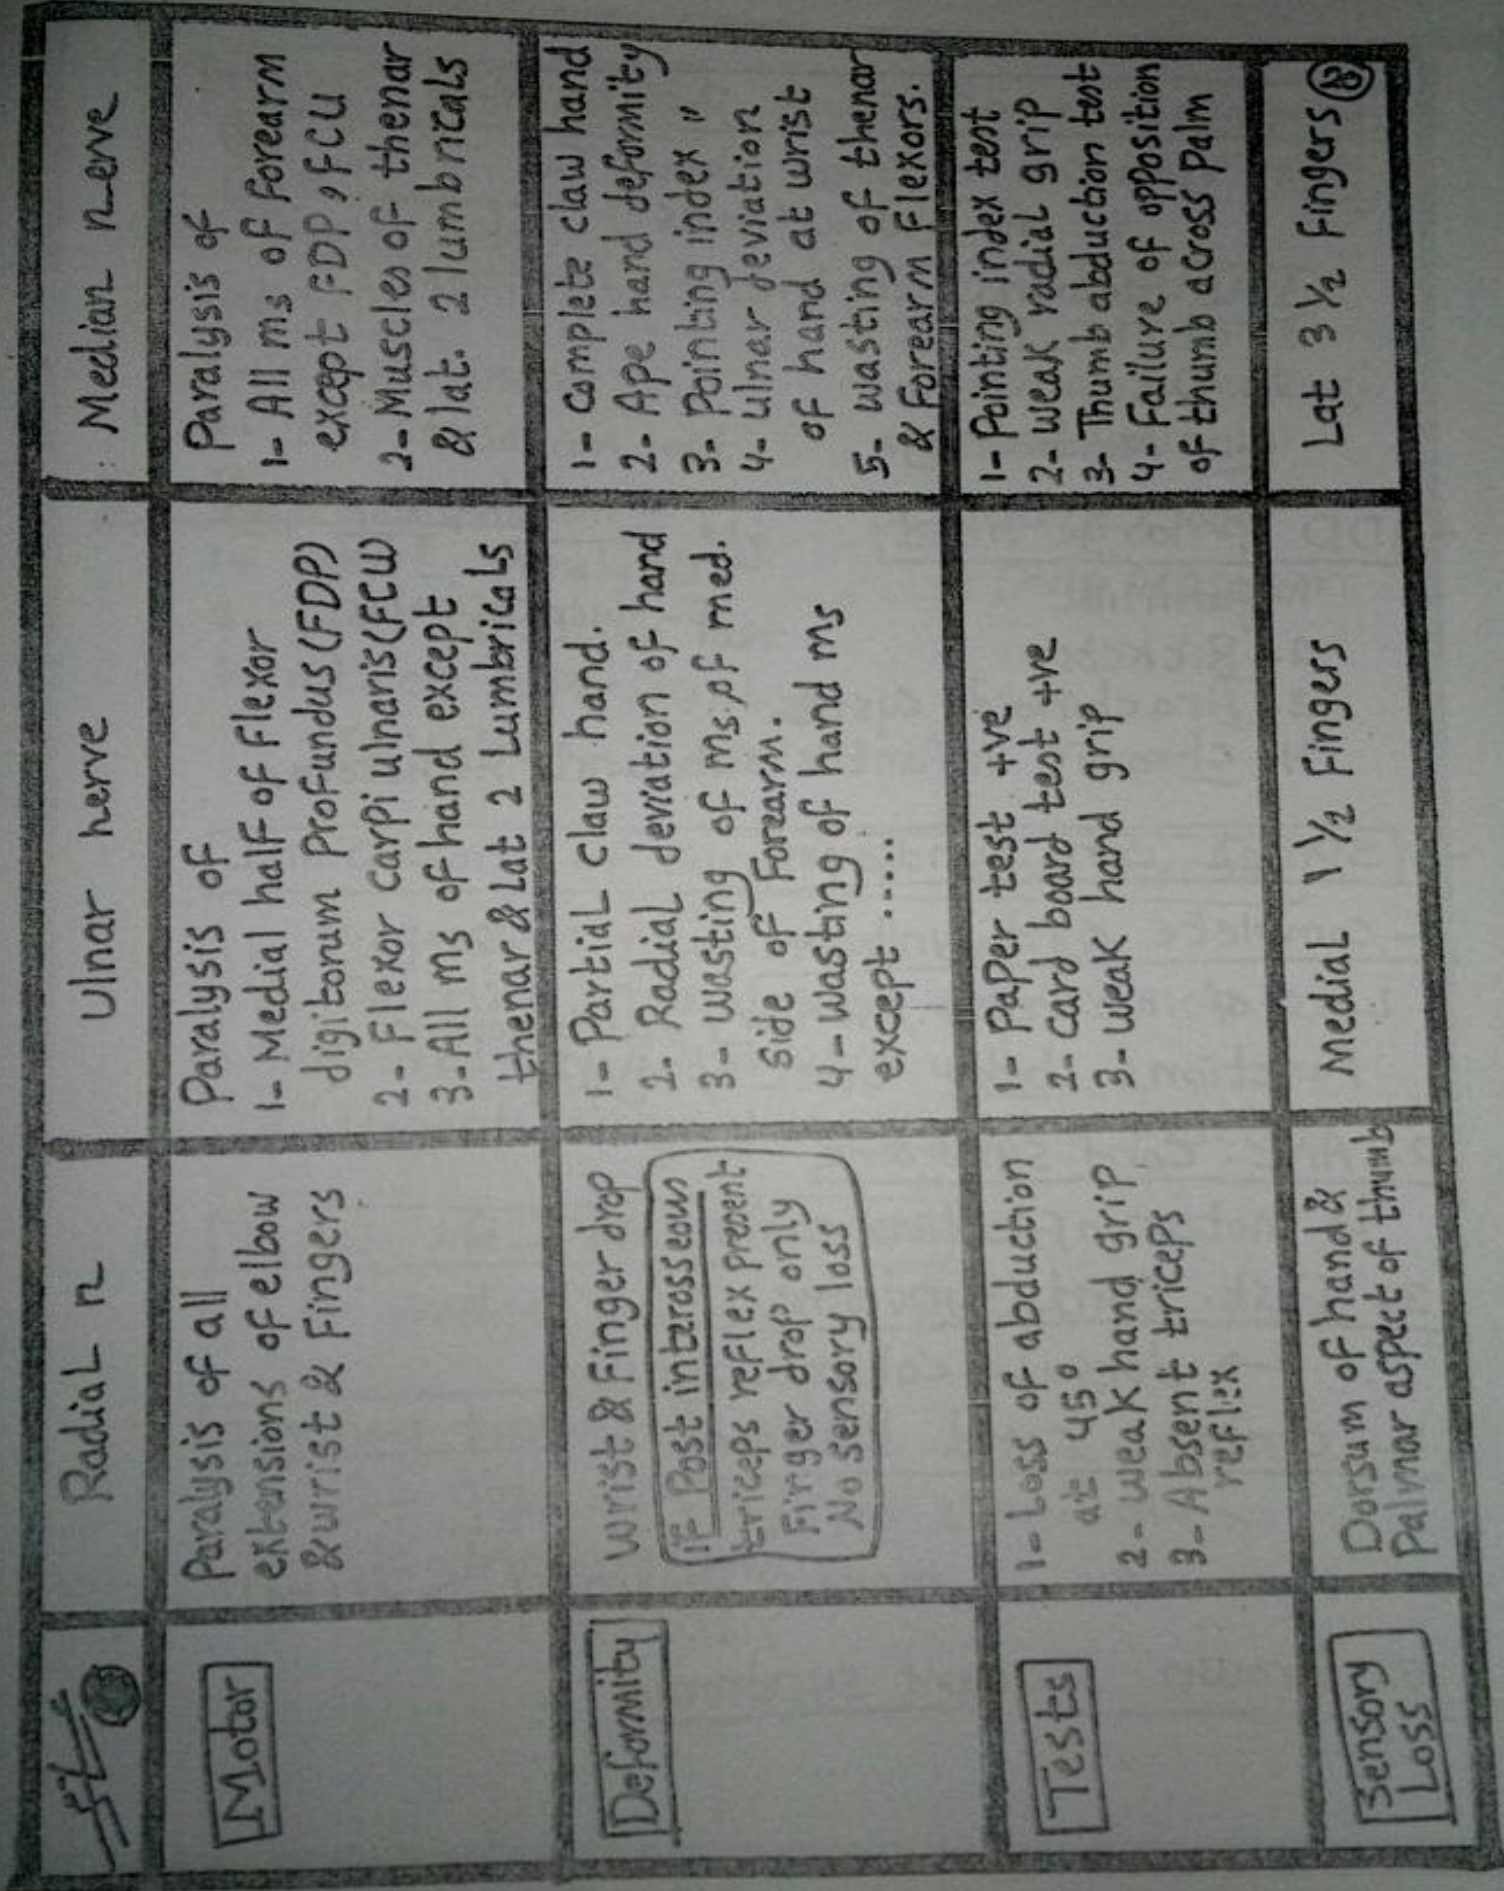 Radial n
Ulnar nerve
Median nerve
Motor
Paralysis of all
extensions of elbow
& wrist & Fingers
Paralysis of
1- Medial half of Flexor
digitorum Profundus (FDP)
2- Flexor Carpi ulnaris (FCU)
3- All ms of hand except
thenar & Lat 2 Lumbricals
Paralysis of
1- All ms of Forearm
except FDP, FCU
2- Muscles of thenar
& lat. 2 lumbricals
Deformity
wrist & Finger drop
IF Post interosseous
triceps reflex present
Finger drop only
No sensory loss
1- Partial claw hand.
2- Radial deviation of hand
3- wasting of ms. of med.
side of Forearm.
4- wasting of hand ms
except .....
1- complete claw hand
2- Ape hand deformity
3- Pointing index "
4- ulnar deviation
of hand at wrist
5- wasting of thenar
& Forearm Flexors.
Tests
1- Loss of abduction
at 45°
2- weak hand grip
3- Absent triceps
reflex
1- PaPer test +ve
2- card board test +ve
3- weak hand grip
1- Pointing index test
2- weak radial grip
3- Thumb abduction test
4- Failure of opposition
of thumb across palm
Sensory
Loss
Dorsum of hand &
Palmar aspect of thumb
Medial 1 ½ Fingers
Lat 3 ½ Fingers